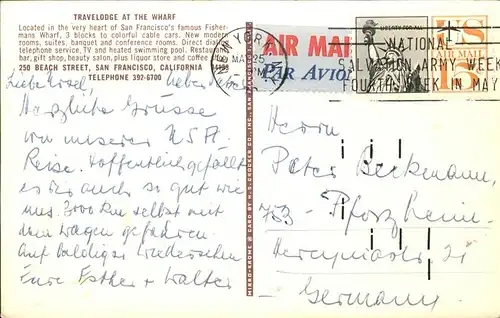 TRAVELODGE AT THE WHARF
Located in the very heart of San Francisco's famous Fisher-
mans Wharf, 3 blocks to colorful cable cars. New modern
rooms, suites, banquet and conference rooms. Direct dial
telephone service, TV and heated swimming pool. Restaurant,
bar, gift shop, beauty salon, plus liquor store and coffee
250 BEACH STREET, SAN FRANCISCO, CALIFORNIA
TELEPHONE 392-6700
Herzliche Grüsse
von unserer USA
Reise. Hoffentlich gefällt
es Dir auch so gut wie
uns. 3000 km selbst mit
dem Wagen gefahren.
Auf baldiges Wiedersehen
Eure Esther + Walter
NEW YORK
AIR MAIL
PAR AVION
LIBERTY FOR ALL
US
AIR MAIL
15¢
NATIONAL
SALVATION ARMY WEEK
FOURTH WEEK IN MAY
Herrn
Peter Beckmann,
753 Pforzheim
Hercyniastr. 21
Germany